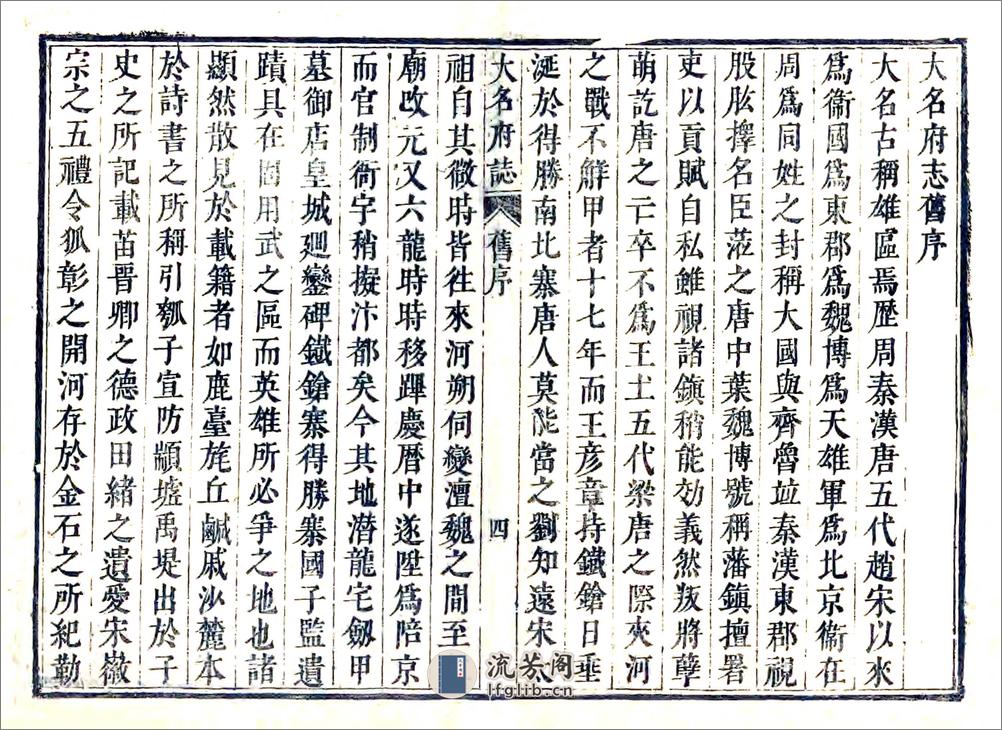 大名府志舊序
大名古稱雄區焉歷周秦漢唐五代趙宋以來
爲衞國爲東郡爲魏博爲天雄軍爲北京衞在
周爲同姓之封稱大國與齊魯竝秦漢東郡視
股肱擇名臣涖之唐中葉魏博號稱藩鎮擅署
吏以貢賦自私雖視諸鎮稍能効義然叛將孽
萌訖唐之亡卒不爲王土五代梁唐之際夾河
之戰不解甲者十七年而王彥章持鐵鎗日垂
涎於得勝南北寨唐人莫能當之劉知遠宋太
大名府誌 舊序 四
祖自其微時皆往來河朔伺變澶魏之間至
廟改元又六龍時時移蹕慶曆中遂陞爲陪京
而官制衙宇稍擬汴都矣今其地潜龍宅劔甲
墓御店皇城廻鑾碑鐵鎗寨得勝寨國子監遺
蹟具在固用武之區而英雄所必爭之地也諸
顯然散見於載籍者如鹿臺旄丘鹹戚沙麓本
於詩書之所稱引瓠子宣防顓墟禹堤出於子
史之所記載苗晋卿之德政田緒之遺愛宋徽
宗之五禮令狐彰之開河存於金石之所紀勒
流芳阁
lfglib.cn